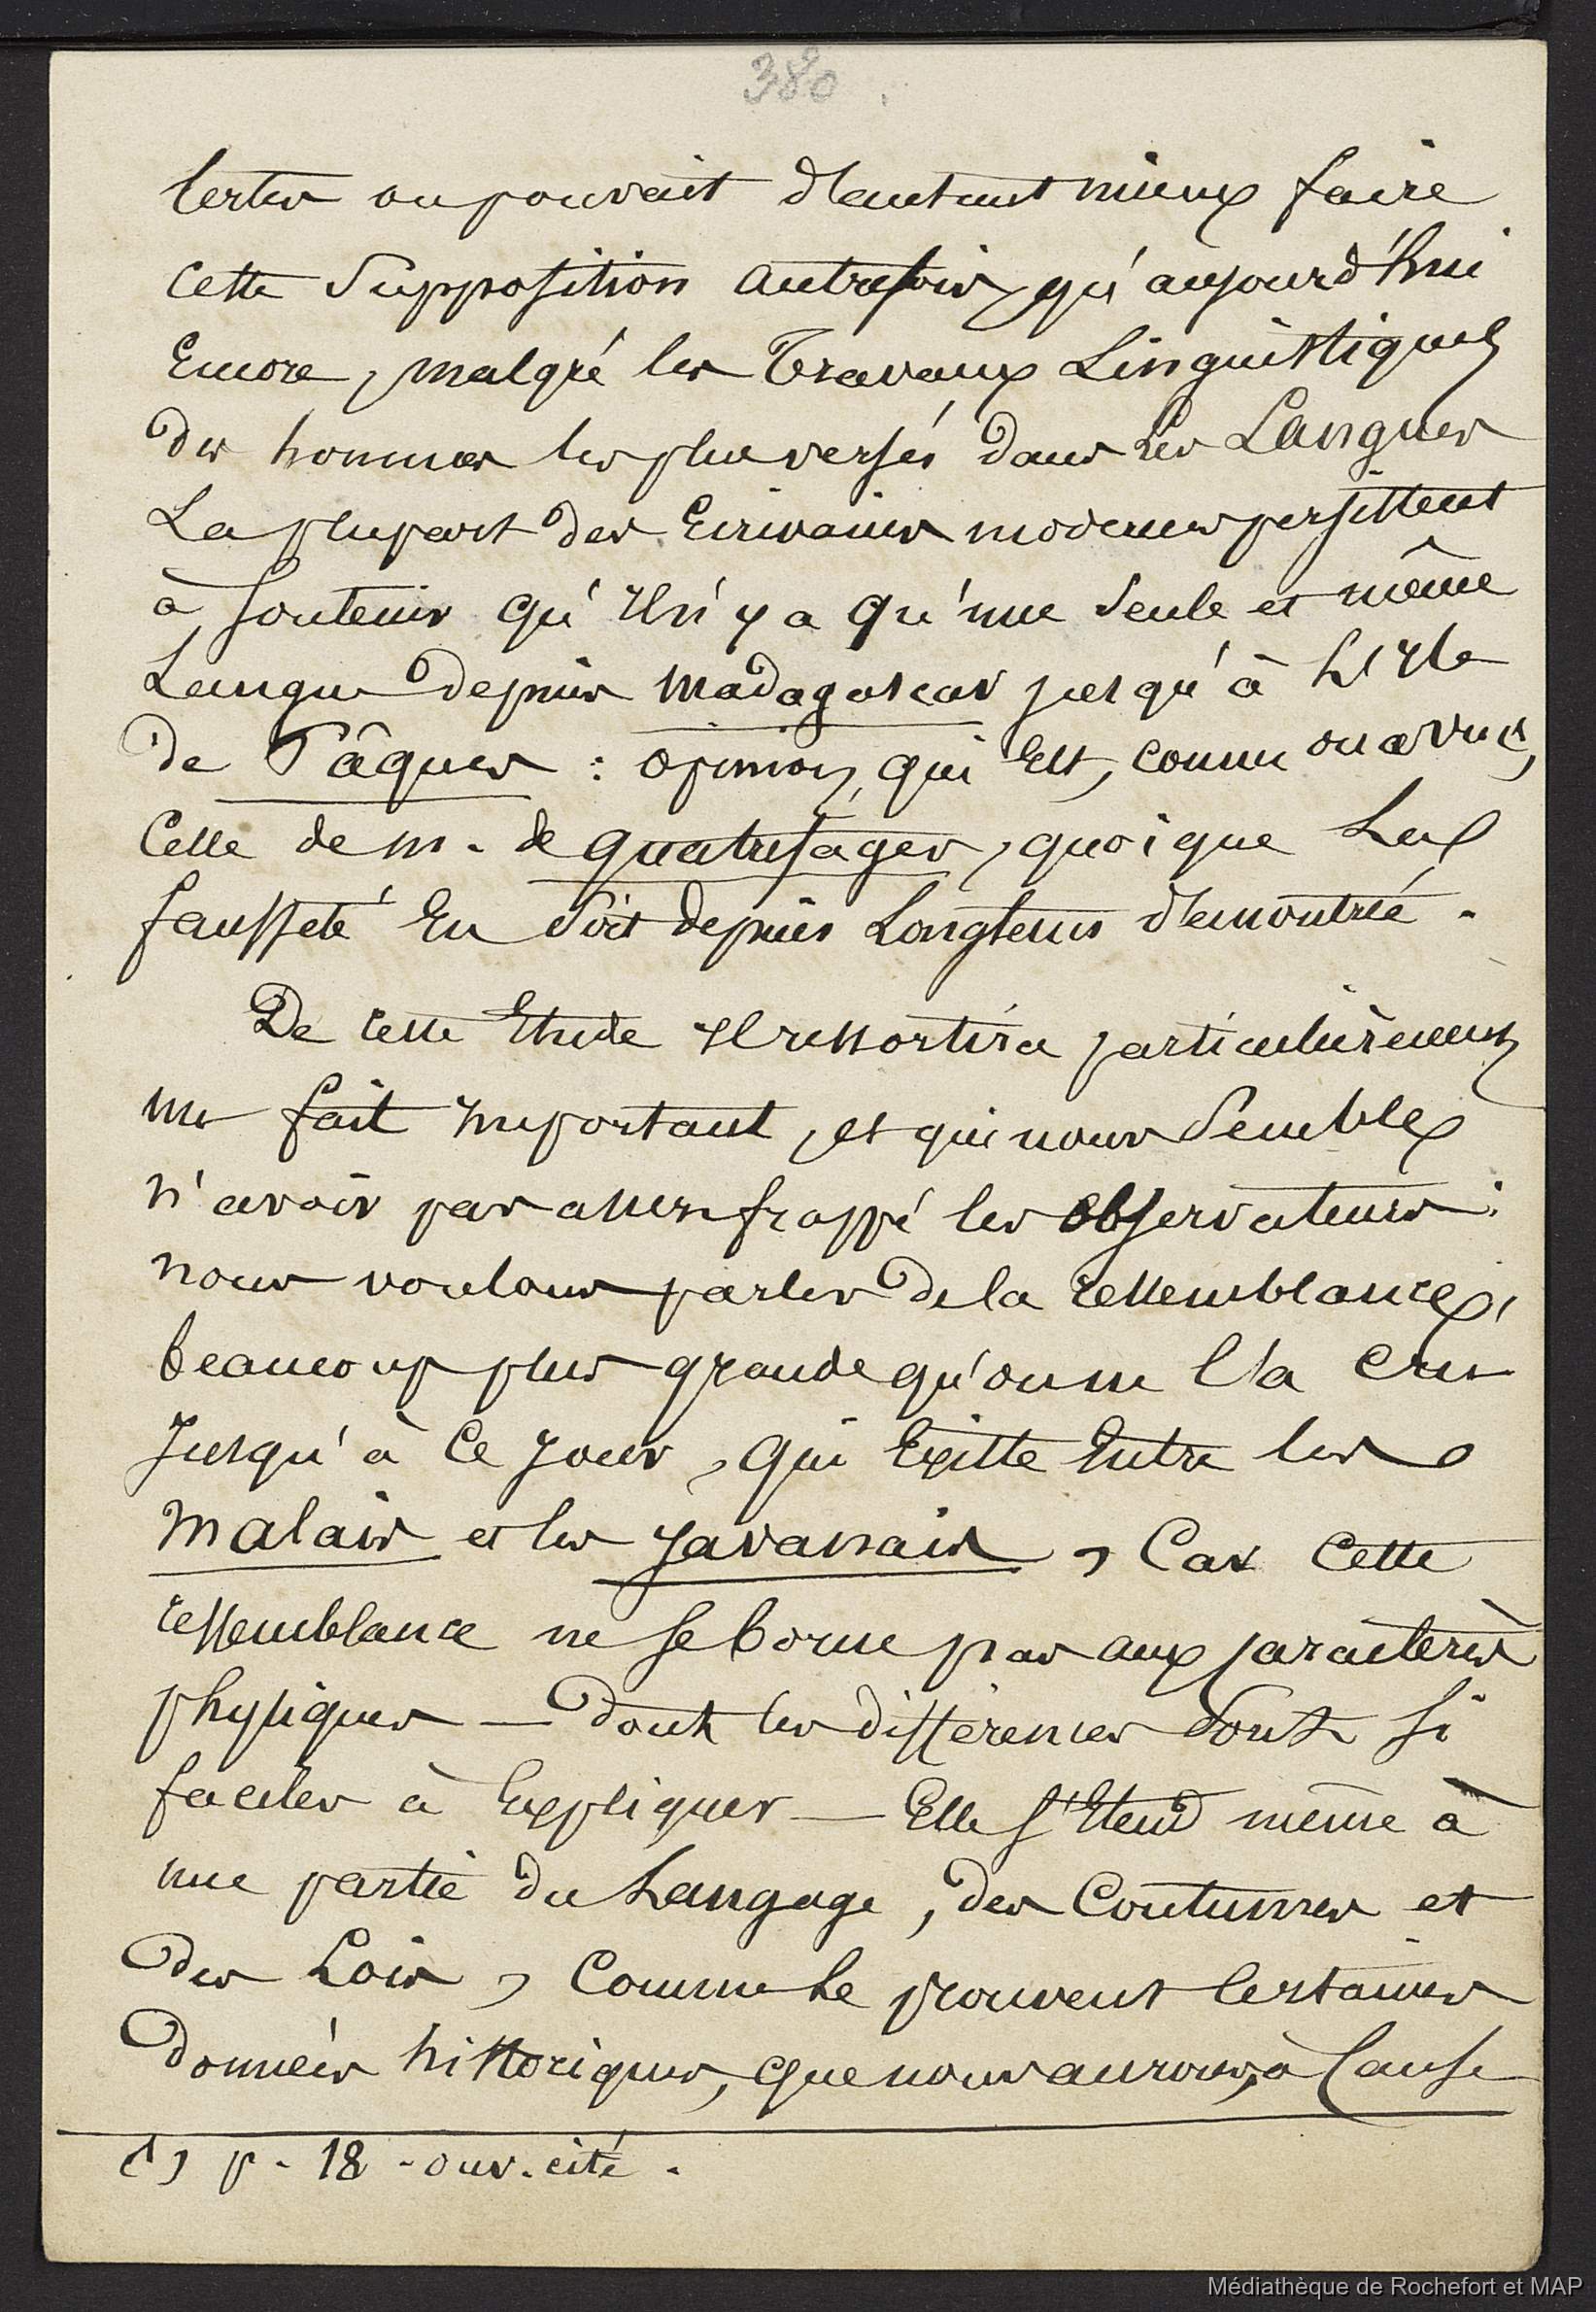 380.
Certes on pouvait d'autant mieux faire
cette Supposition autrefois, qu'aujourd'hui
Encore, malgré les Travaux Linguistiques
des hommes les plus versés dans les Langues
La plupart des Ecrivains modernes persistent
à soutenir qu'Il n'y a qu'une Seule et même
Langue depuis Madagascar jusqu'à L'Ile
de Pâques : opinion, qui Est, comme on a vu,
Celle de M. de Quatrefages, quoique La
fausseté En Soit depuis Longtems démontrée.
De cette Etude Il ressortira particulièrement
un fait Important, et qui nous Semble
n'avoir pas assez frappé les Observateurs :
nous voulons parler de la ressemblance,
beaucoup plus grande qu'on ne l'a cru
Jusqu'à Ce Jour, qui Existe Entre les
Malais et les Javanais, Car Cette
ressemblance ne se borne pas aux caractères
physiques — dont les différences Sont si
faciles à Expliquer — Elle s'Etend même à
une partie du Langage, des Coutumes et
des Lois, Comme Le prouvent Certaines
données historiques, que nous aurons, à Cause
(1) p. 18 - ouv. cité.
Médiathèque de Rochefort et MAP